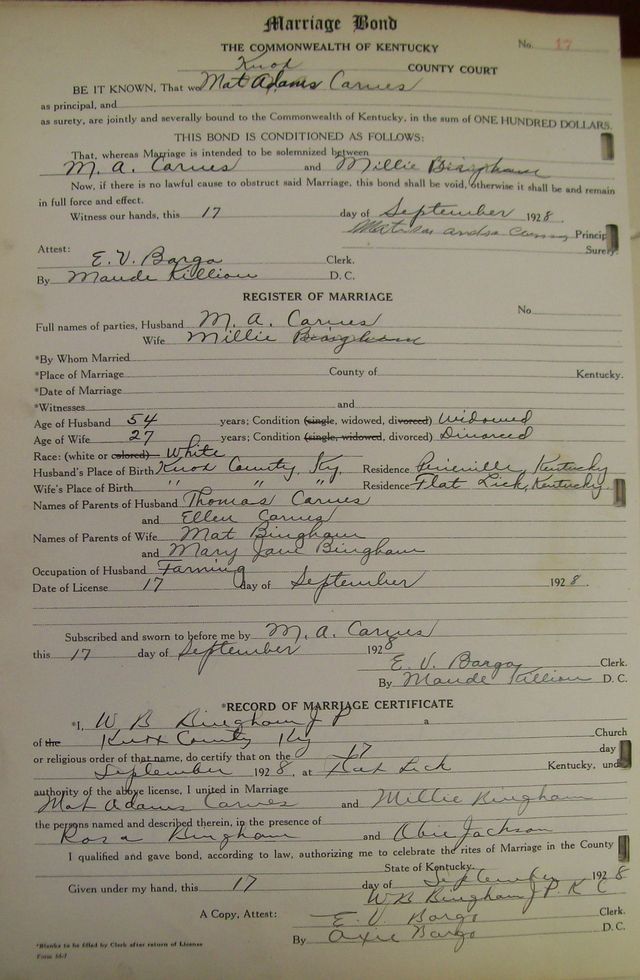 Marriage Bond
THE COMMONWEALTH OF KENTUCKY
No. 17
Knox COUNTY COURT
BE IT KNOWN, That we Mat Adams Carnes
as principal, and
as surety, are jointly and severally bound to the Commonwealth of Kentucky, in the sum of ONE HUNDRED DOLLARS.
THIS BOND IS CONDITIONED AS FOLLOWS:
That, whereas Marriage is intended to be solemnized between
M. A. Carnes and Millie Bingham
Now, if there is no lawful cause to obstruct said Marriage, this bond shall be void, otherwise it shall be and remain
in full force and effect.
Witness our hands, this 17 day of September 1928.
Princip
Surety
Attest:
E. V. Bargo Clerk.
By Maude Killion D. C.
REGISTER OF MARRIAGE
No.
Full names of parties, Husband M. A. Carnes
Wife Millie Bingham
*By Whom Married
*Place of Marriage County of Kentucky.
*Date of Marriage
*Witnesses and
Age of Husband 54 years; Condition (single, widowed, divorced) Widowed
Age of Wife 27 years; Condition (single, widowed, divorced) Divorced
Race: (white or colored) White
Husband's Place of Birth Knox County, Ky. Residence Pineville, Kentucky
Wife's Place of Birth " " " Residence Flat Lick, Kentucky.
Names of Parents of Husband Thomas Carnes
and Ellen Carnes
Names of Parents of Wife Mat Bingham
and Mary Jane Bingham
Occupation of Husband Farming
Date of License 17 day of September 1928.
Subscribed and sworn to before me by M. A. Carnes
this 17 day of September 1928
E. V. Bargo Clerk.
By Maude Killion D. C.
*RECORD OF MARRIAGE CERTIFICATE
*I, W B Bingham J P a
of the Knox County Ky Church
or religious order of that name, do certify that on the 17 day
September 1928, at Flat Lick Kentucky, und
authority of the above license, I united in Marriage
Mat Adams Carnes and Millie Bingham
the persons named and described therein, in the presence of
Rosa Bingham and Obie Jackson
I qualified and gave bond, according to law, authorizing me to celebrate the rites of Marriage in the County
State of Kentucky.
Given under my hand, this 17 day of September 1928
W B Bingham J. P. K C
A Copy, Attest: E. V. Bargo Clerk.
By Axie Bargo D. C.
*Blanks to be filled by Clerk after return of License